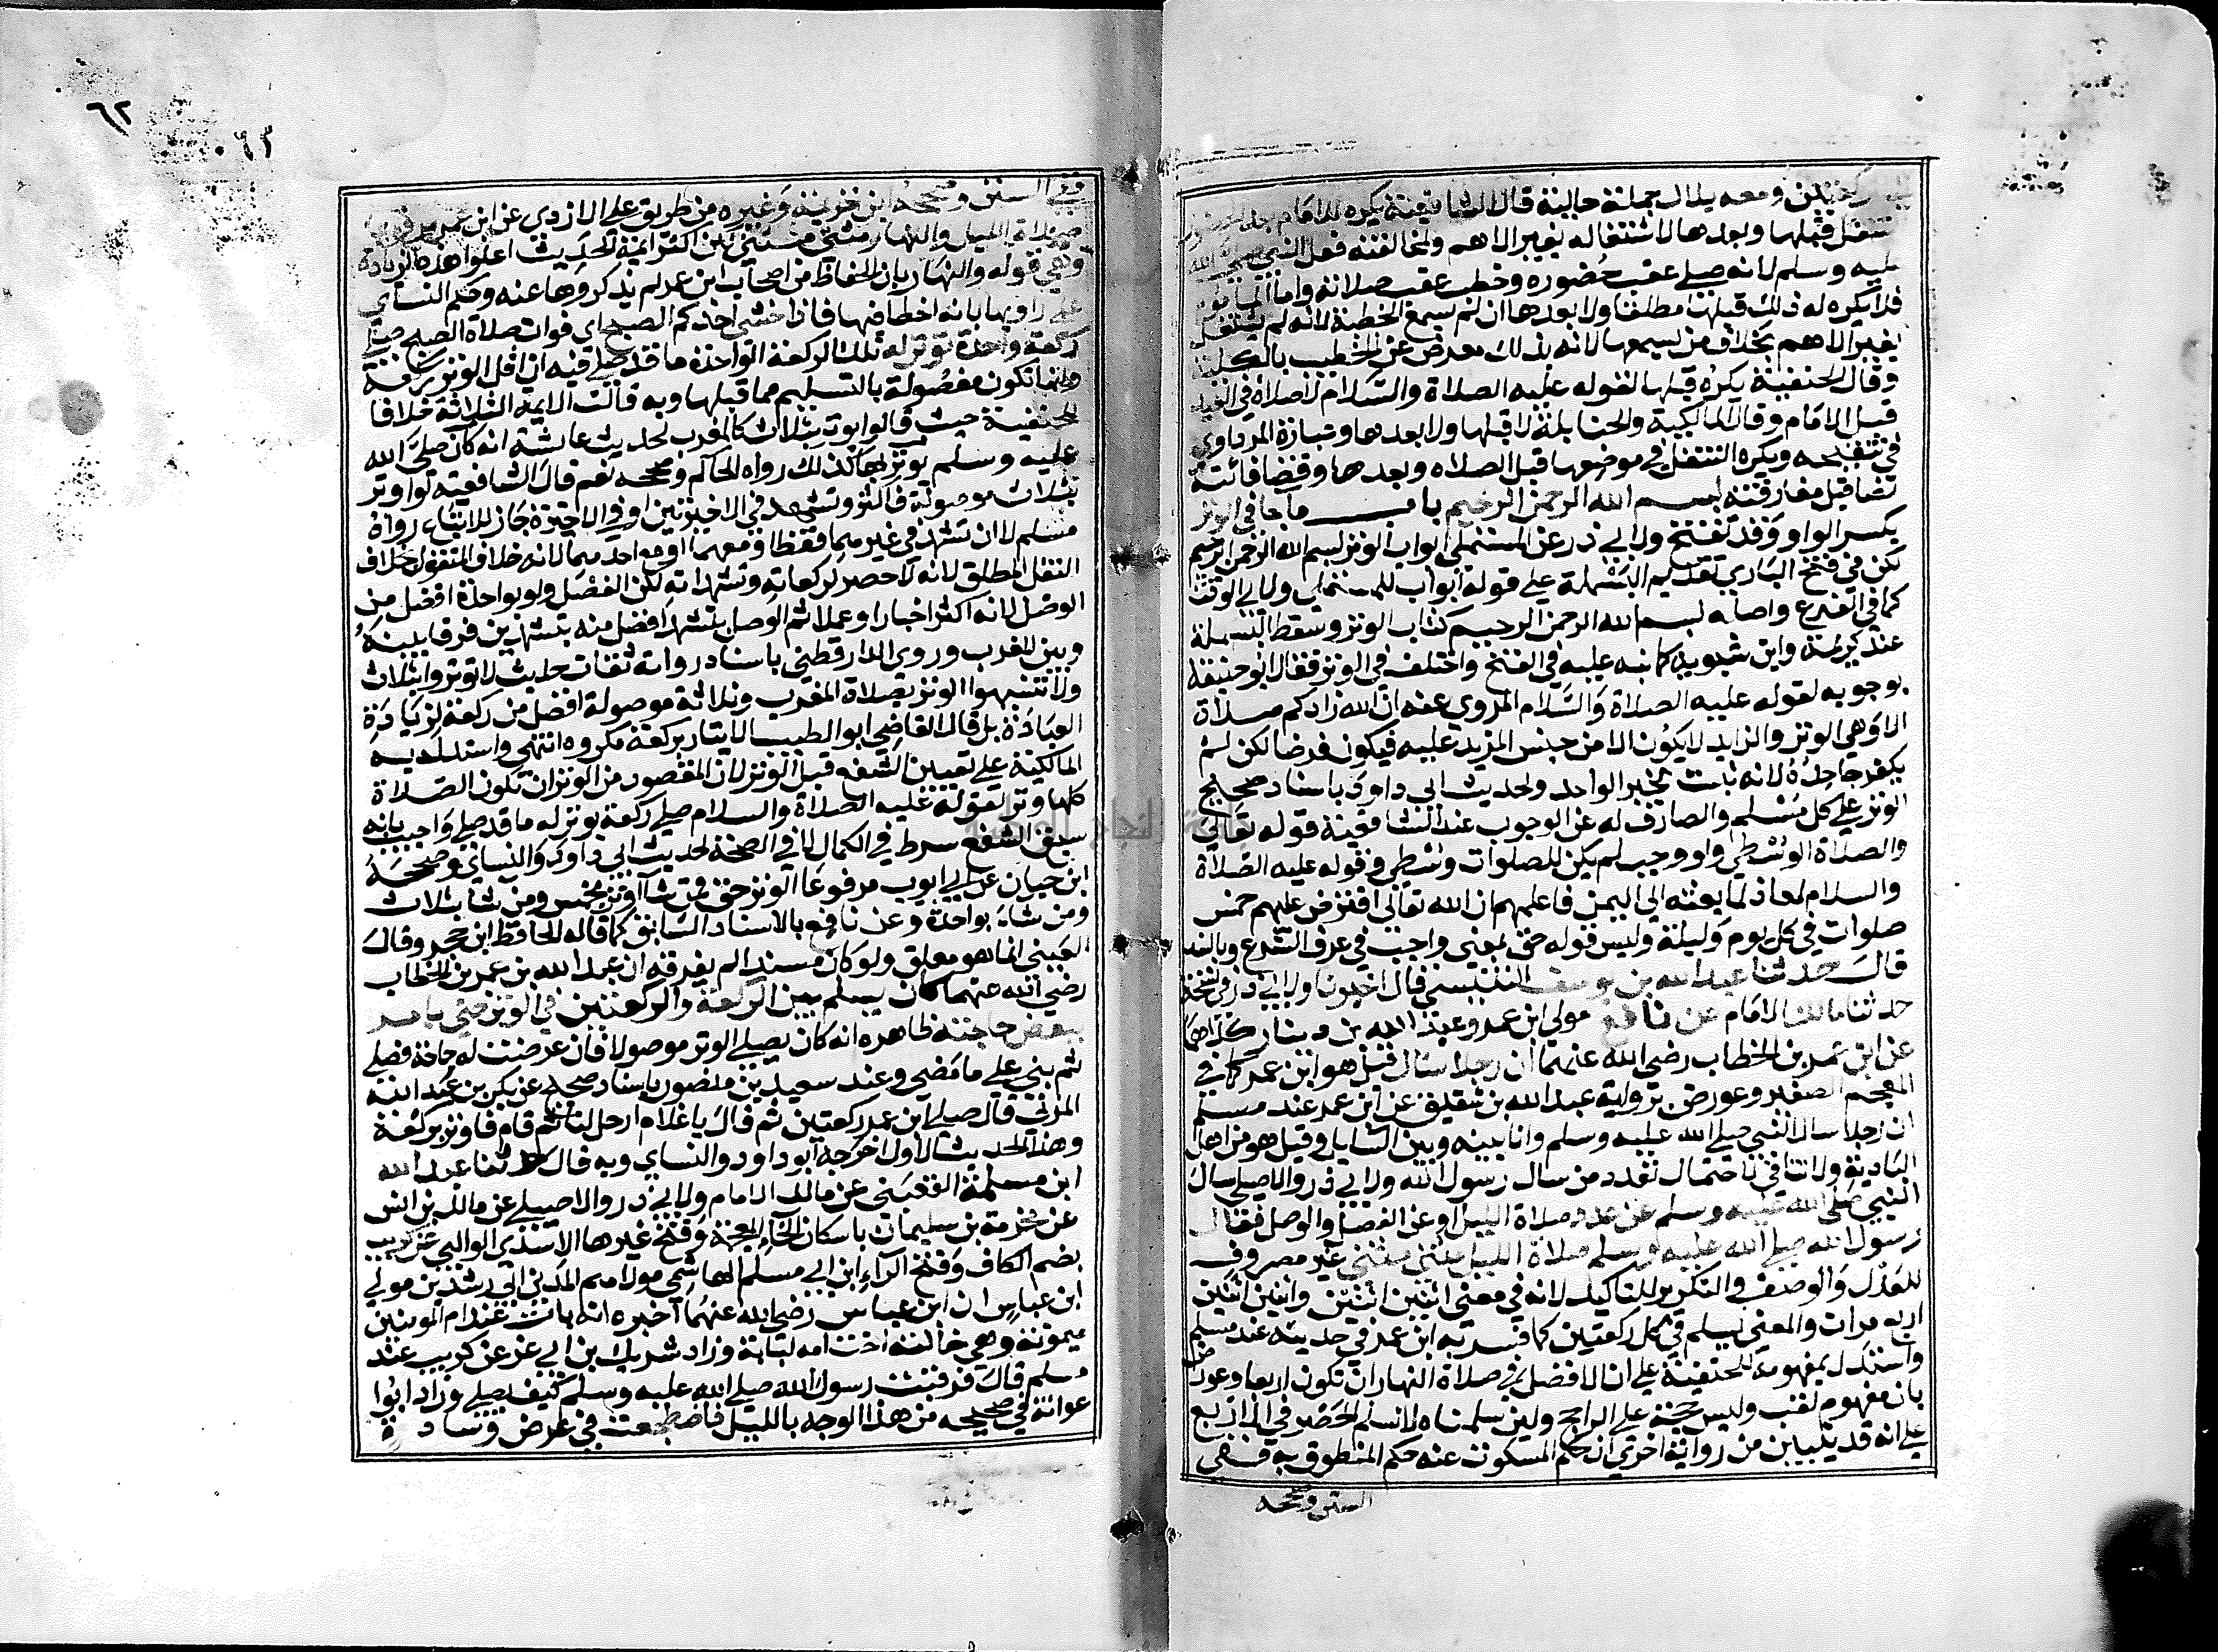 ركعتين ومعه بلال جملة حالية قال الشافعية يكره للامام بعد الحضور
التنفل قبلها وبعدها لاشتغاله بغير الاهم ولمخالفته فعل النبي صلى الله
عليه وسلم لانه صلي عقب حضوره وخطب عقب صلاته واما الماموم
فلا يكره له ذلك قبلها مطلقا ولا بعدها ان لم يسمع الخطبة لانه لم يشتغل
بغير الاهم بخلاف من يسمعها لانه بذلك معرض عن الخطيب بالكلية
وقال الحنفية يكره قبلها لقوله عليه الصلاة والسلام لا صلاة في العيد
قبل الامام وقال المالكية والحنابلة لا قبلها ولا بعدها وعبارة المرداوي
في تنقيحه ويكره التنفل في موضعها قبل الصلاه وبعدها وقضا فائتة
نصا قبل مفارقته بسم الله الرحمن الرحيم باب ما جا في الوتر
بكسر الواو وقد تفتح ولابي ذر عن المستملي ابواب الوتر بسم الله الرحمن الرحيم
لكن في فتح الباري تقديم البسملة علي قوله ابواب للمستملي ولابي الوقت
كما في الفرع واصله بسم الله الرحمن الرحيم كتاب الوتر وسقط البسملة
عند كريمة وابن شبويه كما نبه عليه في الفتح واختلف في الوتر فقال ابو حنيفة
بوجوبه لقوله عليه الصلاة والسلام المروي عنه ان الله زادكم صلاة
الا وهي الوتر والزايد لا يكون الا من جنس المزيد عليه فيكون فرضا لكن لم
يكفر جاحده لانه ثبت بخبر الواحد ولحديث ابي داود باسناد صحيح
الوتر علي كل مسلم والصارف له عن الوجوب عند الشافعية قوله تعالي
والصلاة الوسطي ولو وجب لم يكن للصلوات وسطي وقوله عليه الصلاة
والسلام لمعاذ لما بعثه الي اليمن فاعلمهم ان الله تعالي افترض عليهم خمس
صلوات في كل يوم وليلة وليس قوله حق بمعني واجب في عرف الشرع وبالسند
قال حدثنا عبد الله بن يوسف التنيسي قال اخبرنا ولابي ذر في نسخة
حدثنا مالك الامام عن نافع مولي ابن عمر وعبد الله بن دينار كلاهما
عن ابن عمر بن الخطاب رضي الله عنهما ان رجلا سال قيل هو ابن عمر كما في
المعجم الصغير وعورض برواية عبد الله بن شقيق عن ابن عمر عند مسلم
ان رجلا سال النبي صلي الله عليه وسلم وانا بينه وبين السايل وقيل هو من اهل
البادية ولا تنافي لاحتمال تعدد من سال رسول الله ولابي ذر والاصيلي سال
النبي صلي الله عليه وسلم عن عدد صلاة الليل او عن الفصل والوصل فقال
رسول الله صلي الله عليه وسلم صلاة الليل مثني مثني غير مصروف
للعدل والوصف والتكرير للتاكيد لانه في معني اثنين اثنين واثنين اثنين
اربع مرات والمعني يسلم في كل ركعتين كما فسر به ابن عمر في حديثه عند مسلم
واستدل بمفهومه للحنفية علي ان الافضل في صلاة النهار ان تكون اربعا وعورض
بانه مفهوم لقب وليس حجة علي الراجح ولين سلمناه لا نسلم الحصر في الاربع
علي انه قد تبين من رواية اخري ان حكم المسكوت عنه حكم المنطوق به ففي
السنن وصححه
٦٢
٠٦٣
ففي السنن وصححه ابن خزيمة وغيره من طريق علي الازدي عن ابن عمر مرفوعا
صلاة الليل والنهار مثني مثني لكن اكثر ايمة الحديث اعلوا هذه الزيادة
وهي قوله والنهار بان الحفاظ من اصحاب ابن عمر لم يذكروها عنه وحكم النساي
علي راويها بانه اخطا فيها فاذا خشي احدكم الصبح اي فوات صلاة الصبح صلي
ركعة واحدة توتر له تلك الركعة الواحدة ما قد صلي فيه ان اقل الوتر ركعة
وانها تكون مفصولة بالتسليم مما قبلها وبه قالت الايمة الثلاثة خلافا
للحنفية حيث قالوا يوتر بثلاث كالمغرب لحديث عائشة انه كان صلي الله
عليه وسلم يوتر بها كذلك رواه الحاكم وصححه نعم قال الشافعيه لو اوتر
بثلاث موصولة فاكثر وتشهد في الاخيرتين او في الاخيرة جاز للاتباع رواه
مسلم لا ان تشهد في غيرهما فقط او معهما او مع احديهما لانه خلاف المنقول بخلاف
النفل المطلق لانه لا حصر لركعاته وتشهداته لكن الفصل ولو بواحدة افضل من
الوصل لانه اكثر اخبارا وعملا ثم الوصل بتشهد افضل منه بتشهدين فرقا بينه
وبين المغرب وروي الدارقطني باسناد رواته ثقات حديث لا توتروا بثلاث
ولا تشبهوا الوتر بصلاة المغرب وثلاثة موصولة افضل من ركعة لزيادة
العبادة بل قال القاضي ابو الطيب الايتار بركعة مكروه انتهي واستدل به
المالكية علي تعيين الشفع قبل الوتر لان المقصود من الوتر ان تكون الصلاة
كلها وترا لقوله عليه الصلاة والسلام صلي ركعة توتر له ما قد صلي واجيب بانه
سبق الشفع شرط في الكمال لا في الصحة لحديث ابي داود والنساي وصححه
ابن حبان عن ابي ايوب مرفوعا الوتر حق فمن شا اوتر بخمس ومن شا بثلاث
ومن شاء بواحدة وعن نافع بالاسناد السابق كما قاله الحافظ ابن حجر وقال
العيني انما هو معلق ولو كان مسندا لم يفرقه ان عبد الله بن عمر بن الخطاب
رضي الله عنهما كان يسلم بين الركعة والركعتين في الوتر حتي يامر
ببعض حاجته ظاهره انه كان يصلي الوتر موصولا فان عرضت له حاجة فصل
ثم بني علي ما مضي وعند سعيد بن منصور باسناد صحيح عن بكر بن عبد الله
المزني قال صلي ابن عمر ركعتين ثم قال يا غلام ارحل لنا ثم قام فاوتر بركعة
وهذا الحديث الاول اخرجه ابو داود والنساي وبه قال حدثنا عبد الله
ابن مسلمة القعنبي عن مالك الامام ولابي ذر والاصيلي عن مالك بن انس
عن مخرمة بن سليمان باسكان الخاء المعجمة وفتح غيرها الاسدي الوالبي عن كريب
بضم الكاف وفتح الراء ابن ابي مسلم الهاشمي مولاهم المدني ابي رشدين مولي
ابن عباس ان ابن عباس رضي الله عنهما اخبره انه بات عند ام المومنين
ميمونة وهي خالته اخت امه لبابة وزاد شريك بن ابي نمر عن كريب عند
مسلم قال فرقبت رسول الله صلي الله عليه وسلم كيف يصلي وزاد ابوا
عوانة في صحيحه من هذا الوجه بالليل فاضطجعت في عرض وسادة